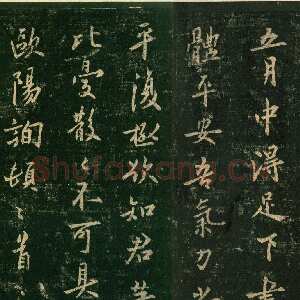 五月中得足下書
體平安吾氣力尚
平復極欲知君等
比憂散不可具
歐陽詢頓〻首〻
Shufawang.Cn